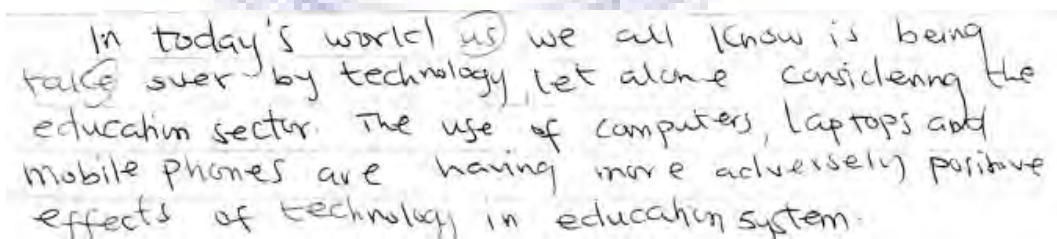 In today's world us we all know is being
take over by technology, let alone considering the
education sector. The use of computers, laptops and
mobile phones are having more adversely positive
effects of technology in education system.